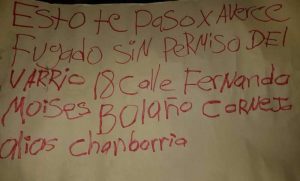 Esto te Paso X AVerCe
Fugado SiN PeRMiSo DEl
VARRio 18 Calle FerNando
Moises Bolaño CorNeJo
alios Chanborria